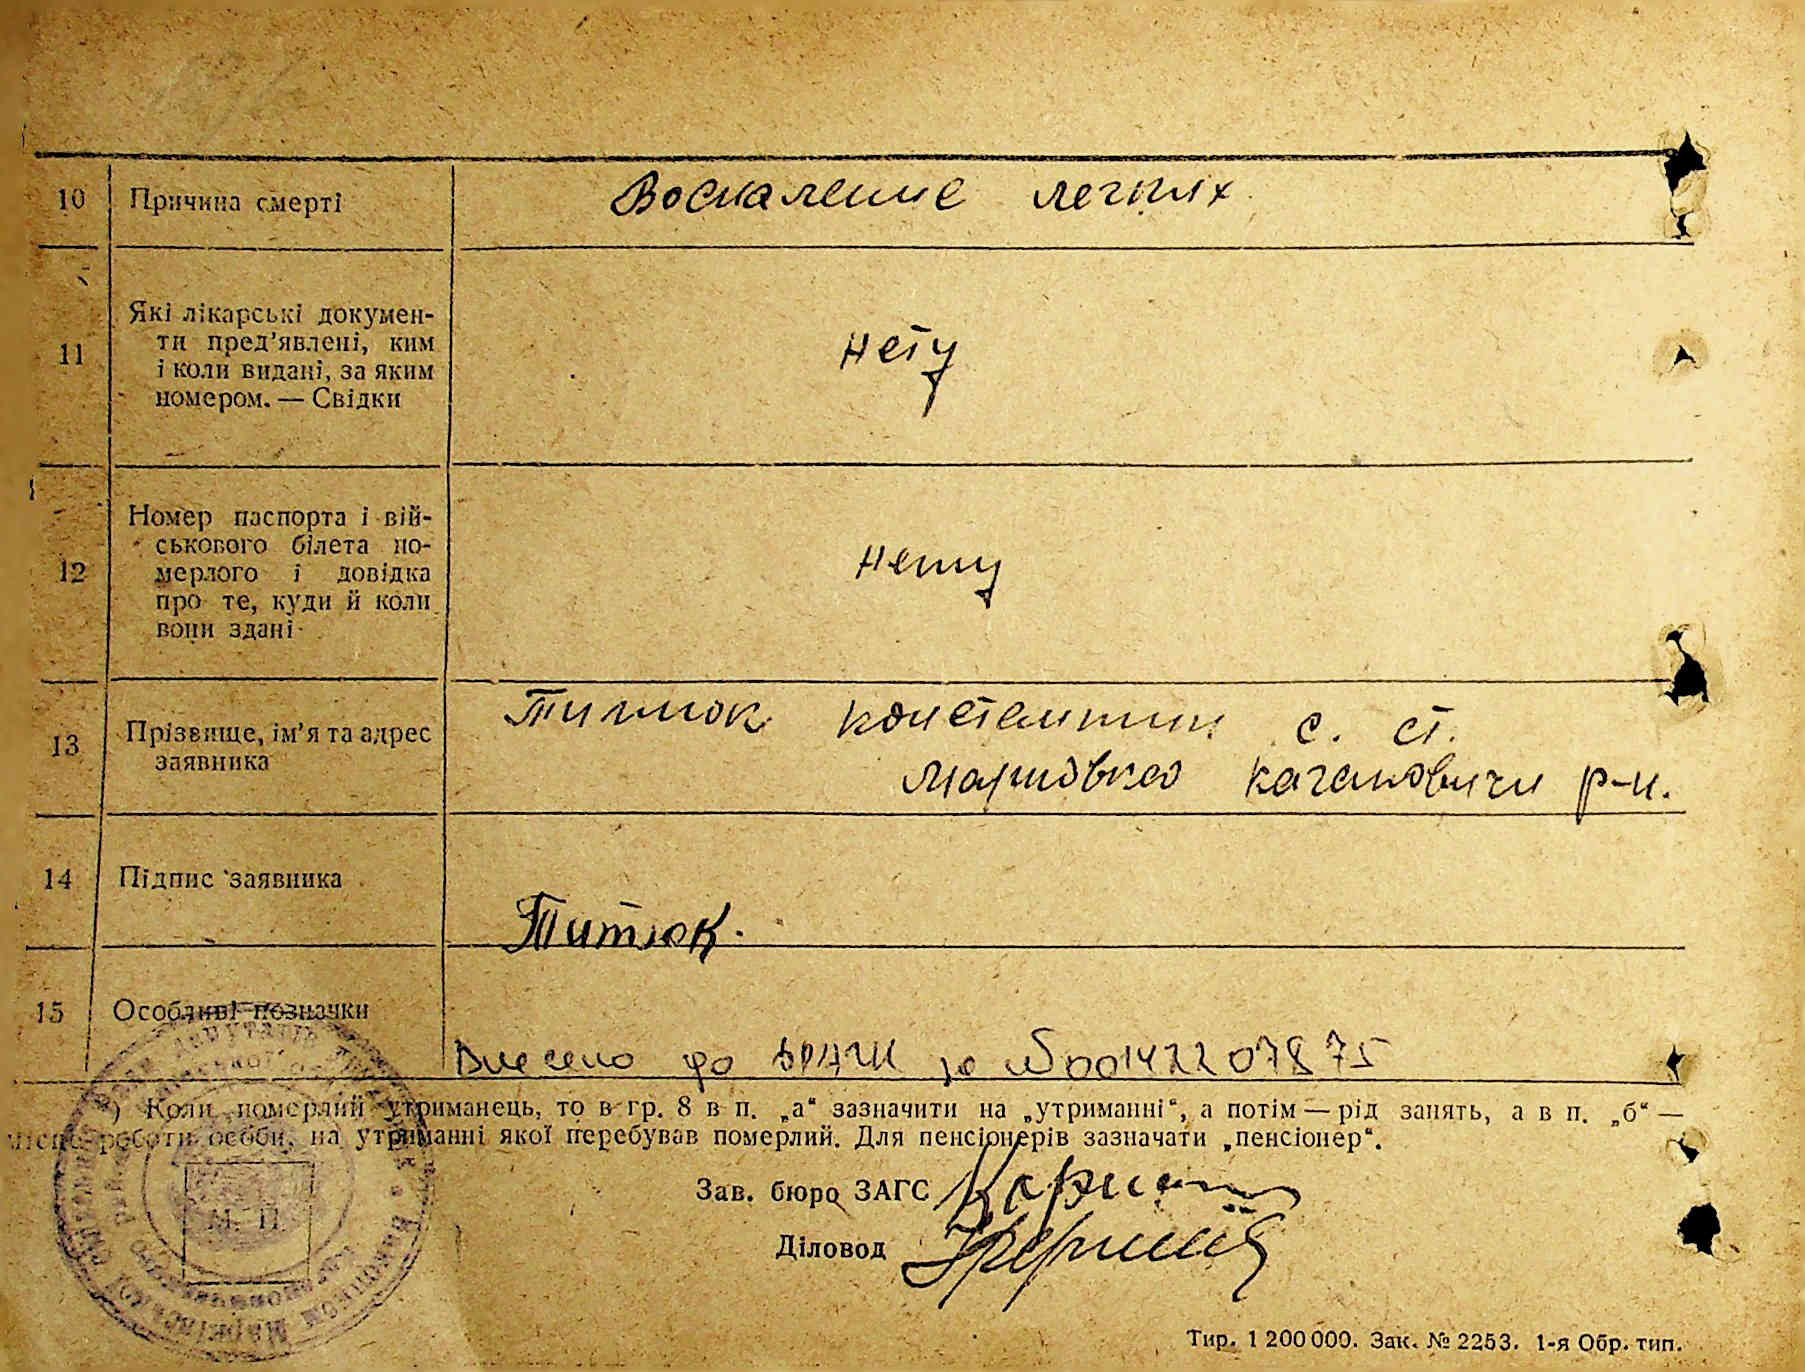 10 Причина смерті Воспаление легких
11 Які лікарські докумен-
ти пред'явлені, ким
і коли видані, за яким
номером. — Свідки
нету
12 Номер паспорта і вій-
ськового білета по-
мерлого і довідка
про те, куди й коли
вони здані
нету
13 Прізвище, ім'я та адрес
заявника
Титюк Константин с. ст.
Марковка Кагановичи р-н.
14 Підпис заявника
Титюк.
15 Особливі позначки
Внесено до ДРАЦС за №00142207875
*) Коли померлий утриманець, то в гр. 8 в п. „а“ зазначити на „утриманні“, а потім — рід занять, а в п. „б“ —
місце роботи особи, на утриманні якої перебував померлий. Для пенсіонерів зазначати „пенсіонер“.
Зав. бюро ЗАГС
Діловод
М. П.
Тир. 1 200 000. Зак. № 2253. 1-я Обр. тип.